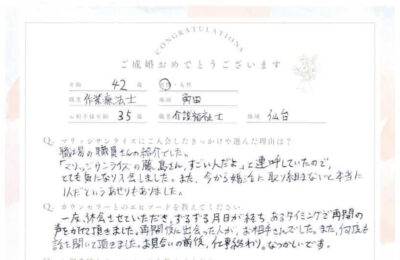 CONGRATULATIONS
ご成婚おめでとうございます
年齢 42 歳 男・女性
職業 作業療法士 地域 角田
お相手様年齢 35 歳 職業 介護福祉士 地域 仙台
Q. マリッジサンライズにご入会したきっかけや選んだ理由は?
職場の職員さんの紹介でした。
「マリッジサンライズの藤島さん、すごい人だよ」と連呼していたので、
とても気になり入会しました。また、今から婚活に取り組まないと本当に
というあせりもありました。
Q. カウンセラーとのエピソードを教えてください。
一度、休会させていただき、ずるずる月日が経ち、あるタイミングで再開の
声をかけて頂きました。再開後に出会った人が、お相手さんでした。また、何度も
話を聞いて頂きました。お見合いの前後、仕事終わり。なつかしいです。